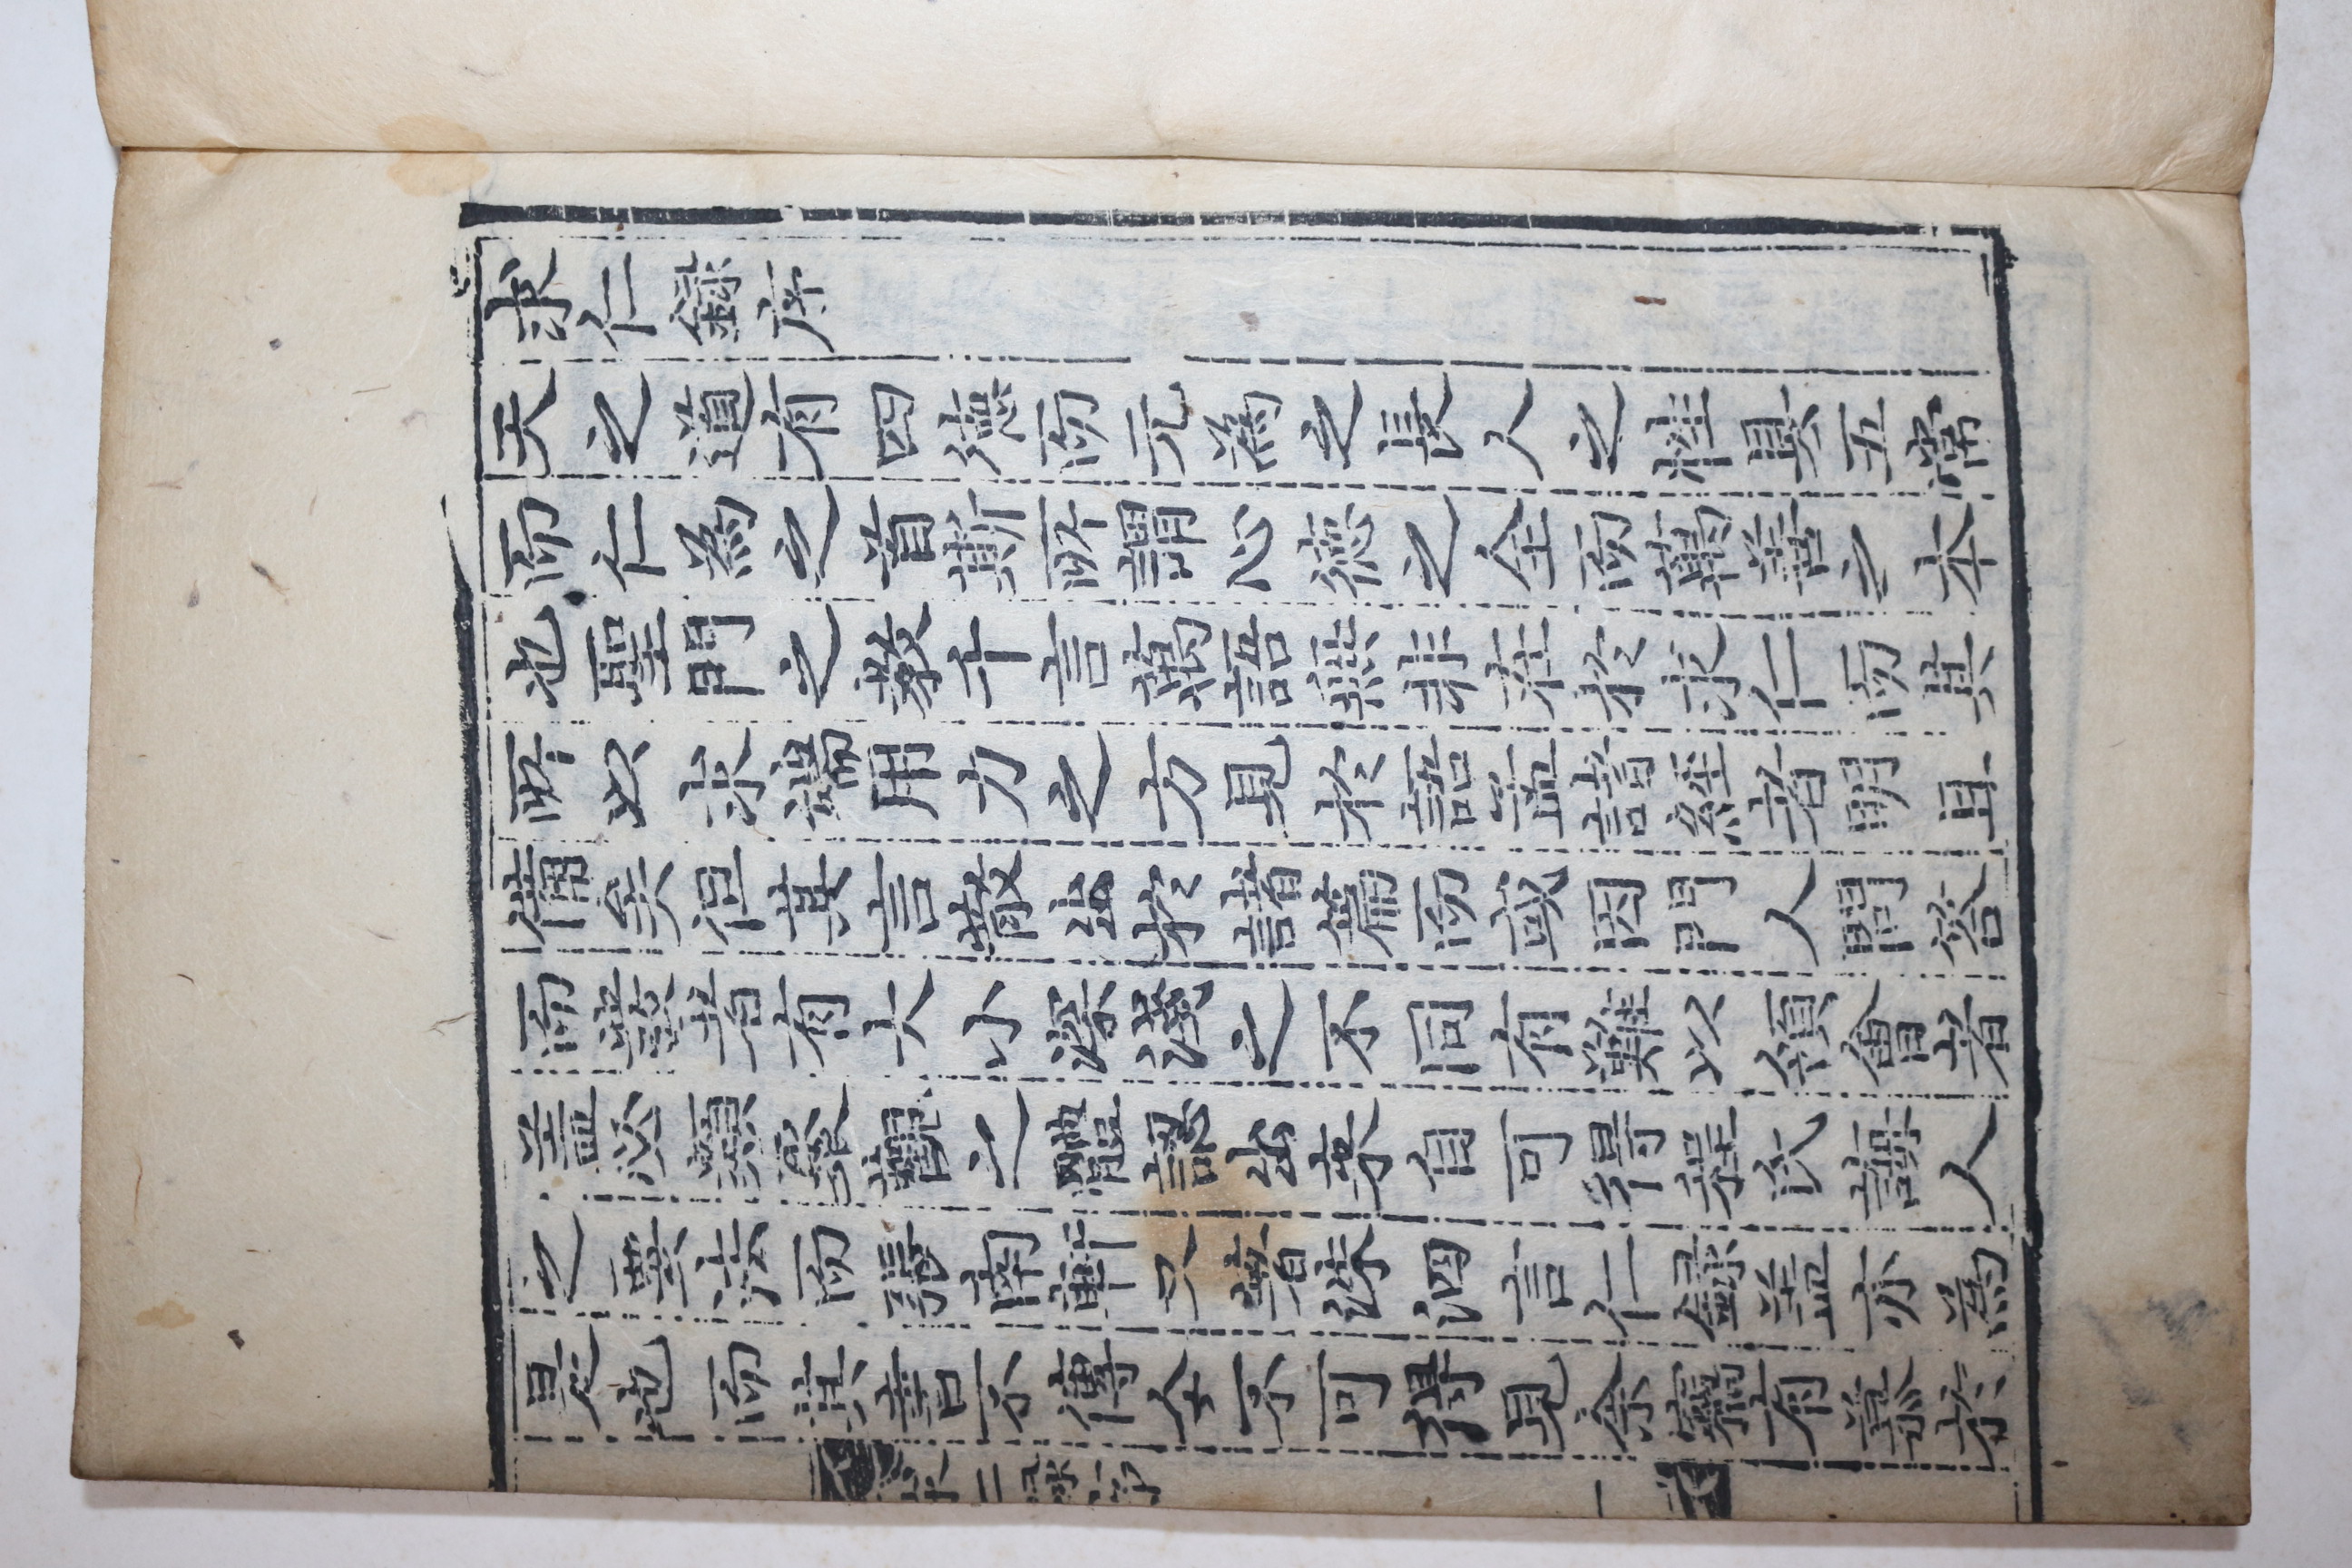 求仁錄序
天之道有四德而元爲之長人之性具五常
而仁爲之首斯所謂心德之全而萬善之本
也聖門之教千言萬語無非在於求仁而其
所以求端用力之方見於語孟諸經者明且
備矣但其言散出於諸篇而或因門人問答
而皆有大小深淺之不同有難以領會者
蓋必類聚觀之體認出來自可得人
之要法而張南軒又洙泗言仁錄蓋亦爲
是也而其書不傳今不可得見余竊有慕於
求仁錄序 一